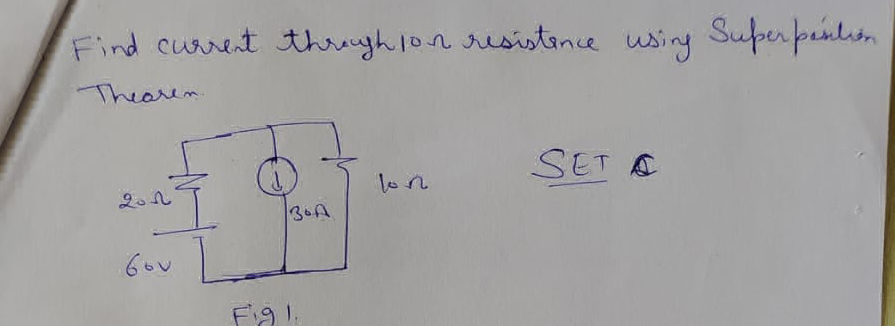 Find current through 10Ω resistance using Superposition
Thearem
SET
20Ω
30A
10Ω
60V
Fig 1.